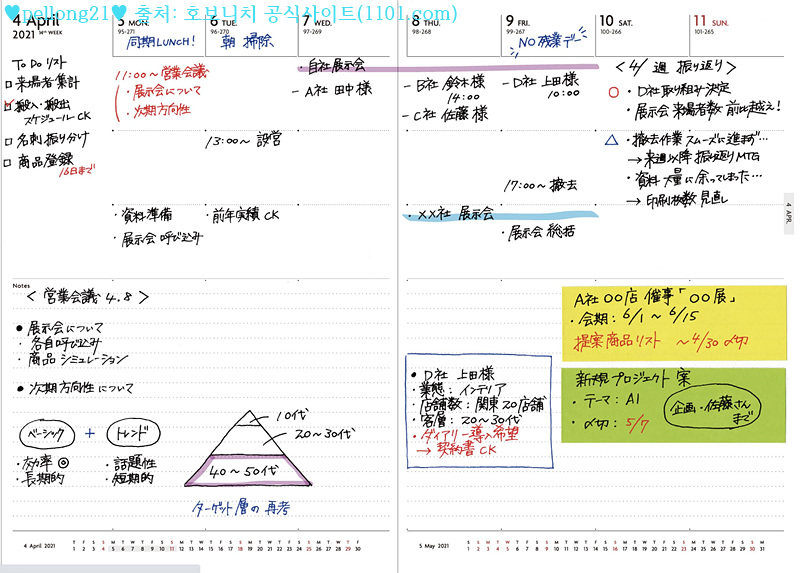 ♥pellong21♥ 출처: 호보니치 공식사이트(1101.com)
4 April
2021 14TH WEEK
5 MON.
95-271
6 TUE.
96-270
7 WED.
97-269
8 THU.
98-268
9 FRI.
99-267
10 SAT.
100-266
11 SUN.
101-265
同期LUNCH!
朝 掃除
NO 残業デー
To Do リスト
来場者集計
搬入・搬出
スケジュール CK
名刺振り分け
商品登録
16日まで
11:00〜営業会議
・展示会について
・次期方向性
・資料準備
・展示会 呼び込み
13:00〜 設営
・前年実績 CK
・自社展示会
− A社 田中様
− B社 鈴木様
14:00
− C社 佐藤様
・XX社 展示会
− D社 上田様
10:00
17:00〜 撤去
・展示会 総括
<4/ 週 振り返り>
○ ・D社取り組み決定
・展示会 来場者数 前比越え!
△ ・撤去作業 スムーズに進まず…
→来週以降 振り返りMTG
・資料 大量に余ってしまった…
→印刷枚数 見直し
4 APR.
Notes
< 営業会議 4.8 >
● 展示会について
・各自呼び込み
・商品 シミュレーション
● 次期方向性について
ベーシック + トレンド
・効率 ◎
・長期的
・話題性
・短期的
10代
20〜30代
40〜50代
ターゲット層の再考
● D社 上田様
・業態: インテリア
・店舗数: 関東20店舗
・客層: 20〜30代
・ダイアリー導入希望
→ 契約書CK
A社 〇〇店 催事「〇〇展」
・会期: 6/1 〜 6/15
提案商品リスト 〜4/30 〆切
新規プロジェクト案
・テーマ: AI
・〆切: 5/7
企画・佐藤さん
まで
4 April 2021
T F S S M T W T F S S M T W T F S S M T W T F S S M T W T F
1 2 3 4 5 6 7 8 9 10 11 12 13 14 15 16 17 18 19 20 21 22 23 24 25 26 27 28 29 30
5 May 2021
S S M T W T F S S M T W T F S S M T W T F S S M T W T F S S M
1 2 3 4 5 6 7 8 9 10 11 12 13 14 15 16 17 18 19 20 21 22 23 24 25 26 27 28 29 30 31